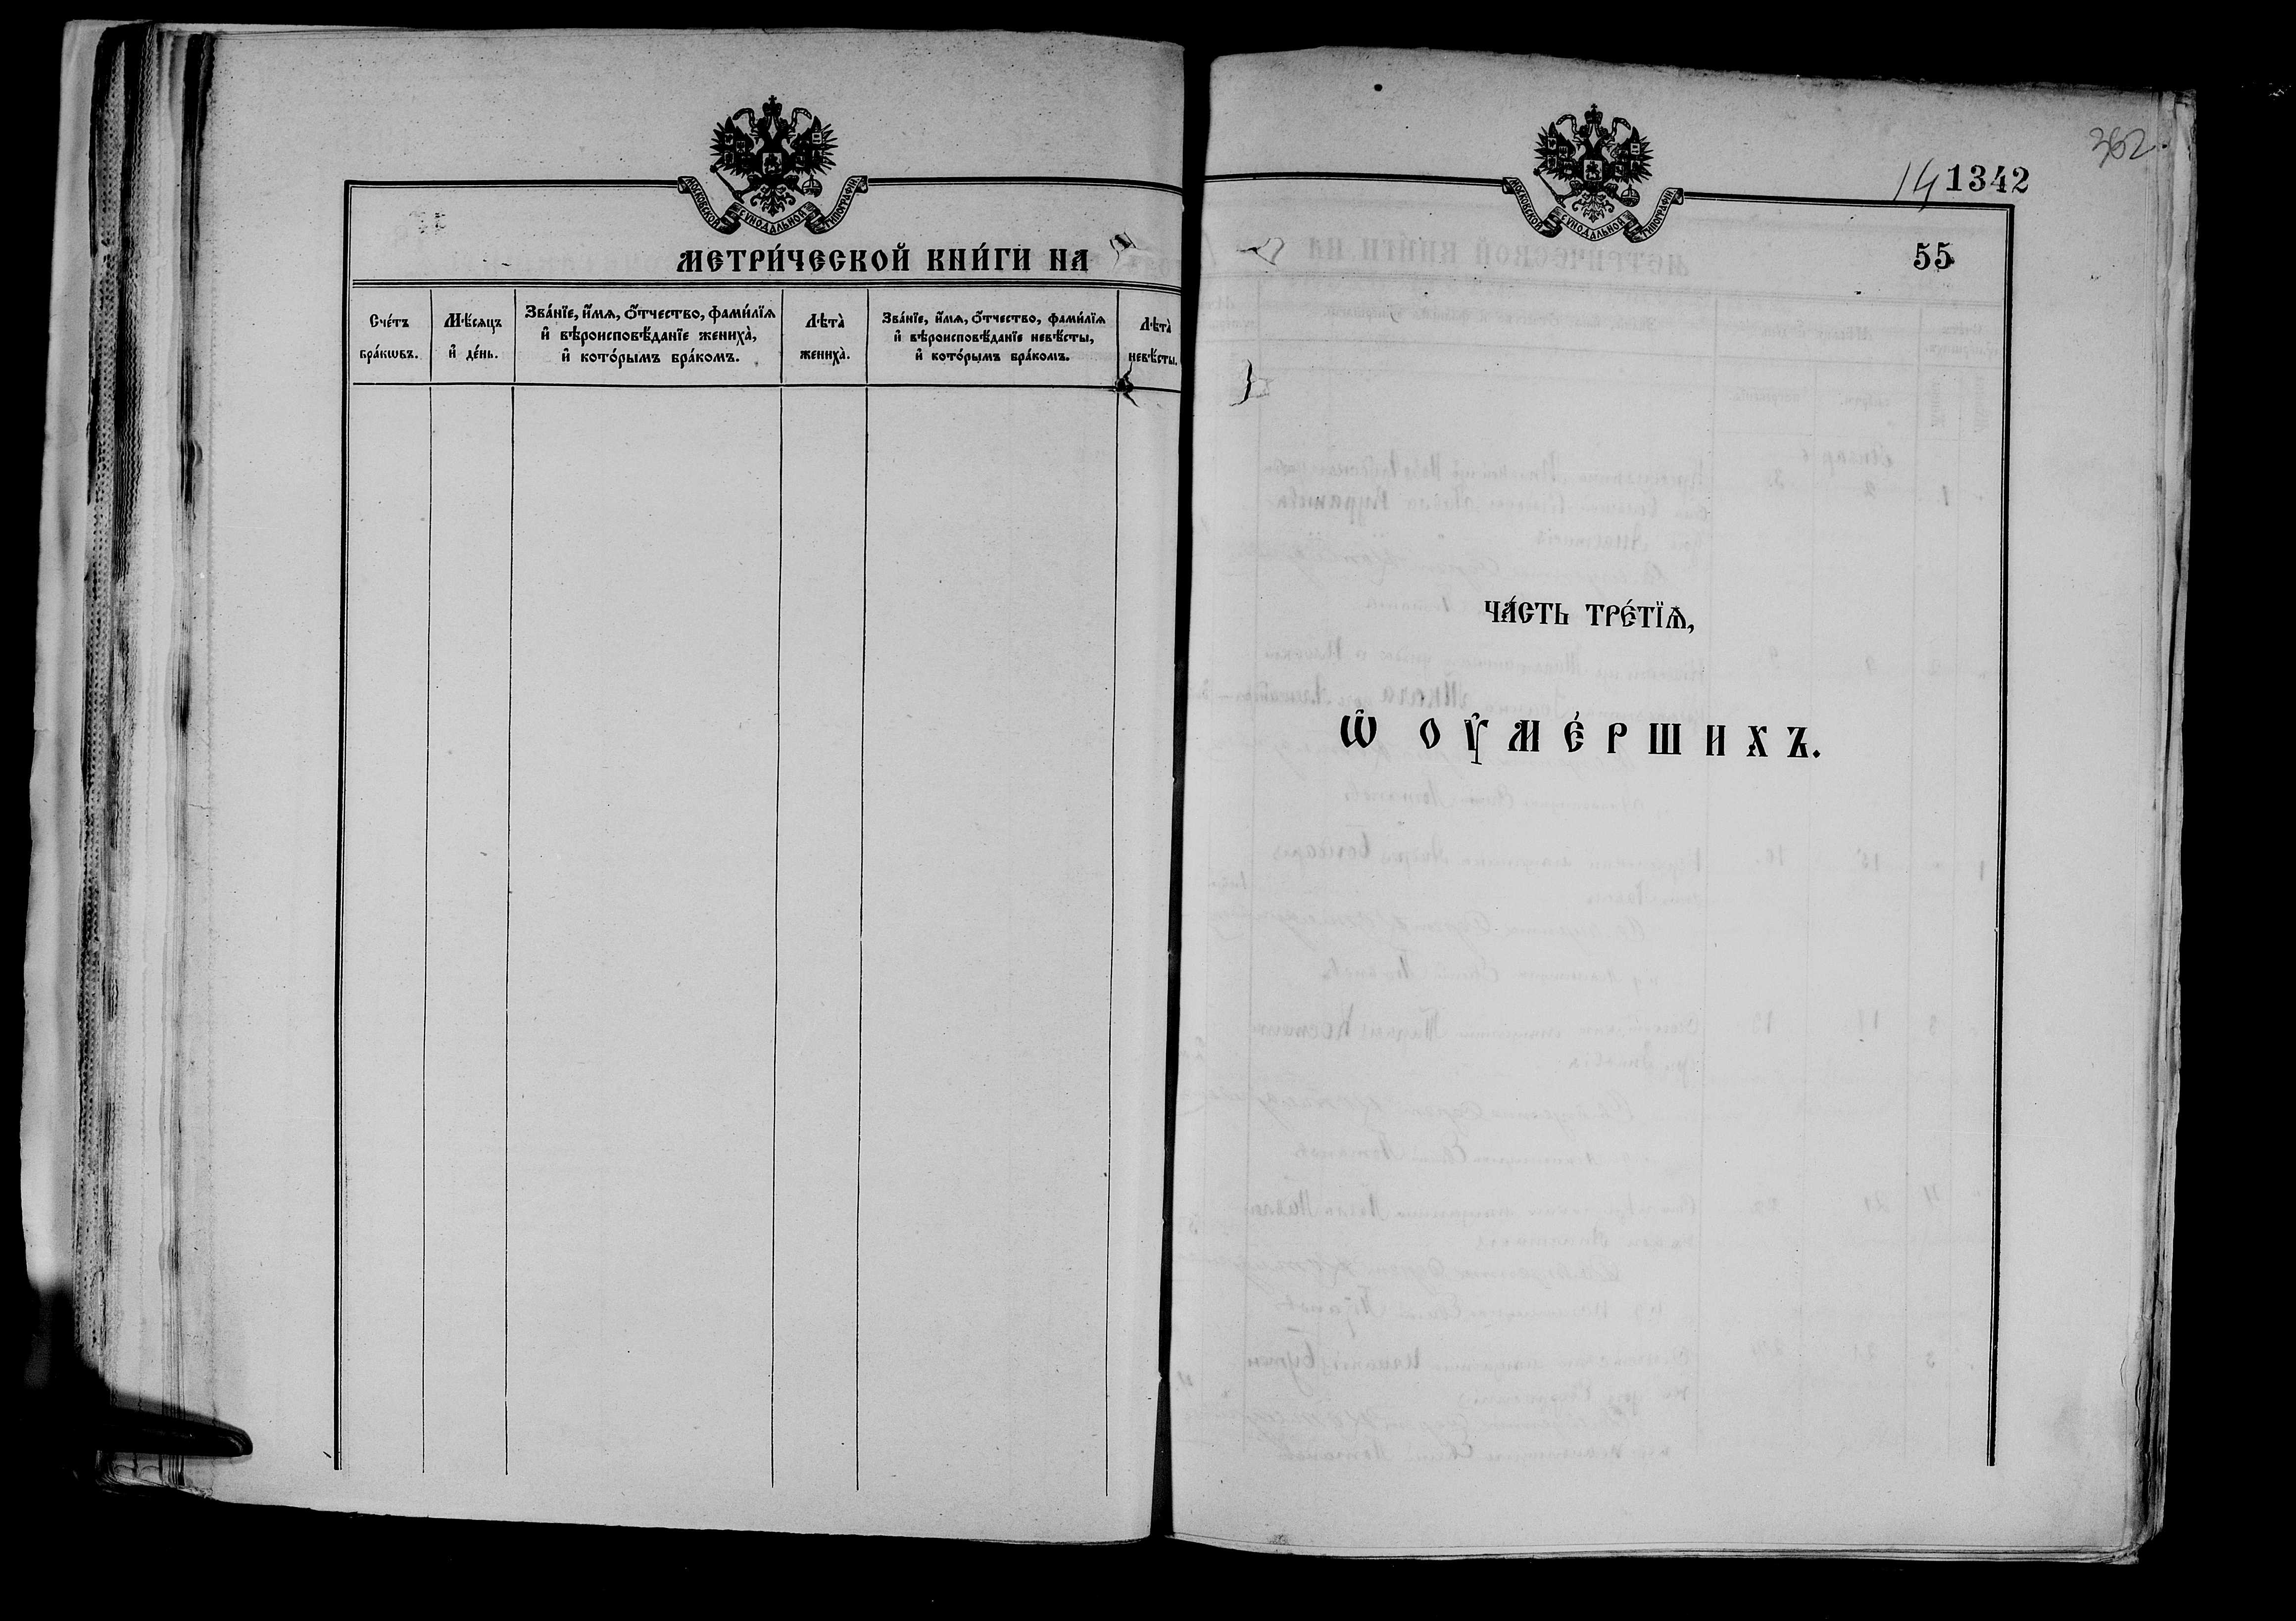 МОСКОВСКОЙ СѴНОДАЛЬНОЙ ТИПОГРАФІИ.
МЕТРИ́ЧЕСКОЙ КНИ́ГИ НА
Сче́тъ
бра́кѡвъ.
Мѣ́сѧцъ
и҆ де́нь.
Зва́нїе, и҆́мѧ, ѻ҆́тчество, фами́лїѧ
и҆ вѣроисповѣ́данїе женихà,
и҆ кото́рымъ бра́комъ.
Лѣтà
женихà.
Зва́нїе, и҆́мѧ, ѻ҆́тчество, фами́лїѧ
и҆ вѣроисповѣ́данїе невѣ́сты,
и҆ кото́рымъ бра́комъ.
Лѣтà
невѣ́сты.
362.
14 1342
МОСКОВСКОЙ СѴНОДАЛЬНОЙ ТИПОГРАФІИ.
55
ЧА́СТЬ ТРЕ́ТЇѦ,
Ѡ҆ ОУ҆МЕ́РШИХЪ.